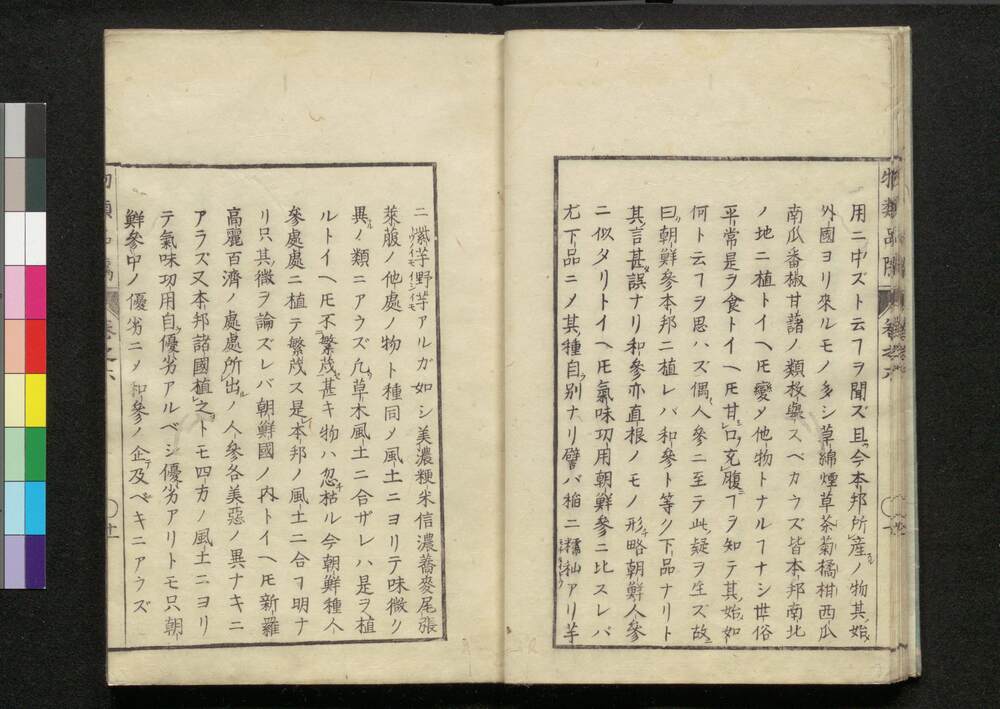 用ニ中ズト云フヲ聞ズ且今本邦所産ノ物其始
外國ヨリ來ルモノ多シ草綿煙草茶菊橘柑西瓜
南瓜番椒甘藷ノ類枚舉スベカラズ皆本邦南北
ノ地ニ植トイヘ𪜈變〆他物トナルヿナシ世俗
平常是ヲ食トイヘ𪜈甘口充腹ヿヲ知テ其始如
何ト云フヲ思ハズ偶人參ニ至テ此疑ヲ生ズ故
曰朝鮮參本邦ニ植レバ和參ト等ク下品ナリト
其言甚誤ナリ和參亦直根ノモノ形略朝鮮人參
ニ似タリトイヘ𪜈氣味功用朝鮮參ニ比スレバ
尤下品ニ〆其種自別ナリ譬バ稲ニ糯秈アリ芋
物類品隲 卷之六
ニ紫芋野芋アルガ如シ美濃粳米信濃蕎麥尾張
萊菔ノ他處ノ物ト種同〆風土ニヨリテ味微ク
異ノ類ニアラズ凡草木風土ニ合ザレハ是ヲ植
ルトイヘ𪜈不繁茂甚キ物ハ忽枯ル今朝鮮種人
參處處ニ植テ繁茂ス是本邦ノ風土ニ合ヿ明ナ
リ只其微ヲ論ズレバ朝鮮國ノ内トイヘ𪜈新羅
高麗百濟ノ處處所出ノ人參各美惡ノ異ナキニ
アラズ又本邦諸國植之トモ四方ノ風土ニヨリ
テ氣味功用自優劣アルベシ優劣アリトモ只朝
鮮參中ノ優劣ニ〆和參ノ企及ベキニアラズ